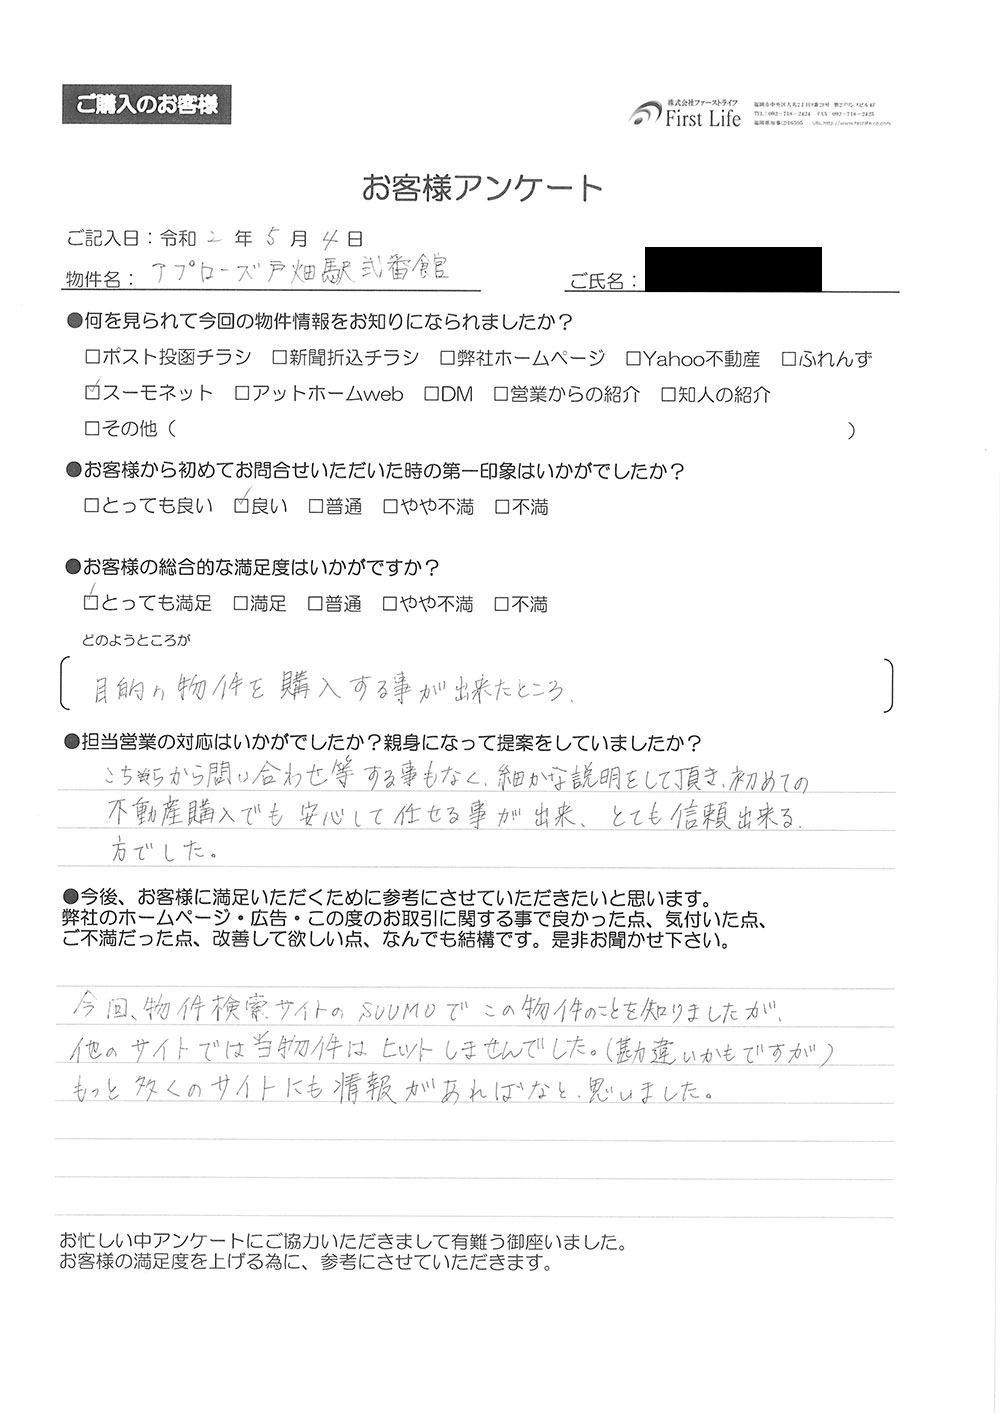 ご購入のお客様
株式会社ファーストライフ
First Life
TEL:092-718-2424 FAX:092-718-2425
お客様アンケート
ご記入日：令和 2 年 5 月 4 日
物件名：アプローズ戸畑駅弐番館 ご氏名：
●何を見られて今回の物件情報をお知りになられましたか？
□ポスト投函チラシ □新聞折込チラシ □弊社ホームページ □Yahoo不動産 □ふれんず
☑スーモネット □アットホームweb □DM □営業からの紹介 □知人の紹介
□その他（ ）
●お客様から初めてお問合せいただいた時の第一印象はいかがでしたか？
□とっても良い ☑良い □普通 □やや不満 □不満
●お客様の総合的な満足度はいかがですか？
☑とっても満足 □満足 □普通 □やや不満 □不満
どのようところが
目的の物件を購入する事が出来たところ.
●担当営業の対応はいかがでしたか？親身になって提案をしていましたか？
こちらから問い合わせ等する事もなく、細かな説明をして頂き、初めての
不動産購入でも安心して任せる事が出来、とても信頼出来る
方でした。
●今後、お客様に満足いただくために参考にさせていただきたいと思います。
弊社のホームページ・広告・この度のお取引に関する事で良かった点、気付いた点、
ご不満だった点、改善して欲しい点、なんでも結構です。是非お聞かせ下さい。
今回、物件検索サイトのSUUMOでこの物件のことを知りましたが、
他のサイトでは当物件はヒットしませんでした。(勘違いかもですが)
もっと多くのサイトにも情報があればなと、思いました。
お忙しい中アンケートにご協力いただきまして有難う御座いました。
お客様の満足度を上げる為に、参考にさせていただきます。